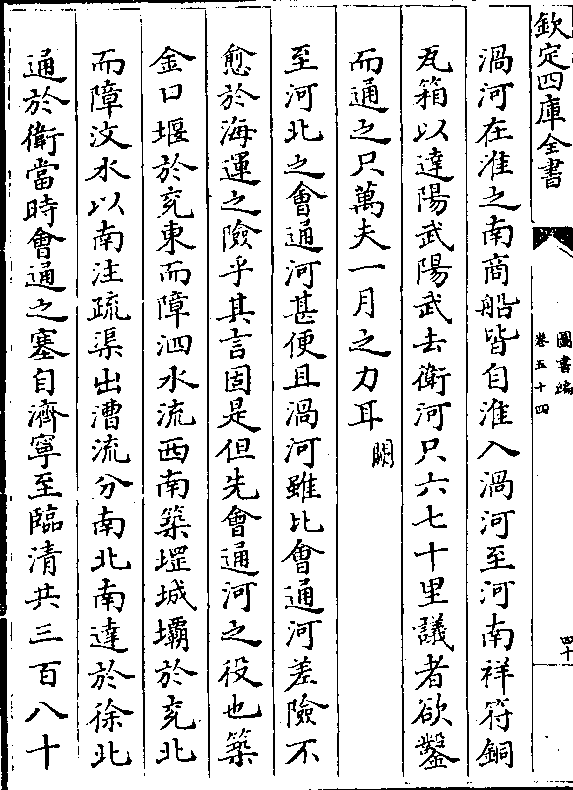 欽定四庫全書
圖書編
卷五十四
四十
渦河在淮之南商船皆自淮入渦河至河南祥符銅
瓦箱以達陽武陽武去衛河只六七十里議者欲鑿
而通之只萬夫一月之力耳 闕
至河北之會通河甚便且渦河雖比會通河差險不
愈於海運之險乎其言固是但先會通河之役也築
金口堰於兗東而障泗水流西南築堽城壩於兗北
而障汶水以南注疏渠出漕流分南北南達於徐北
通於衛當時會通之塞自濟寧至臨清共三百八十